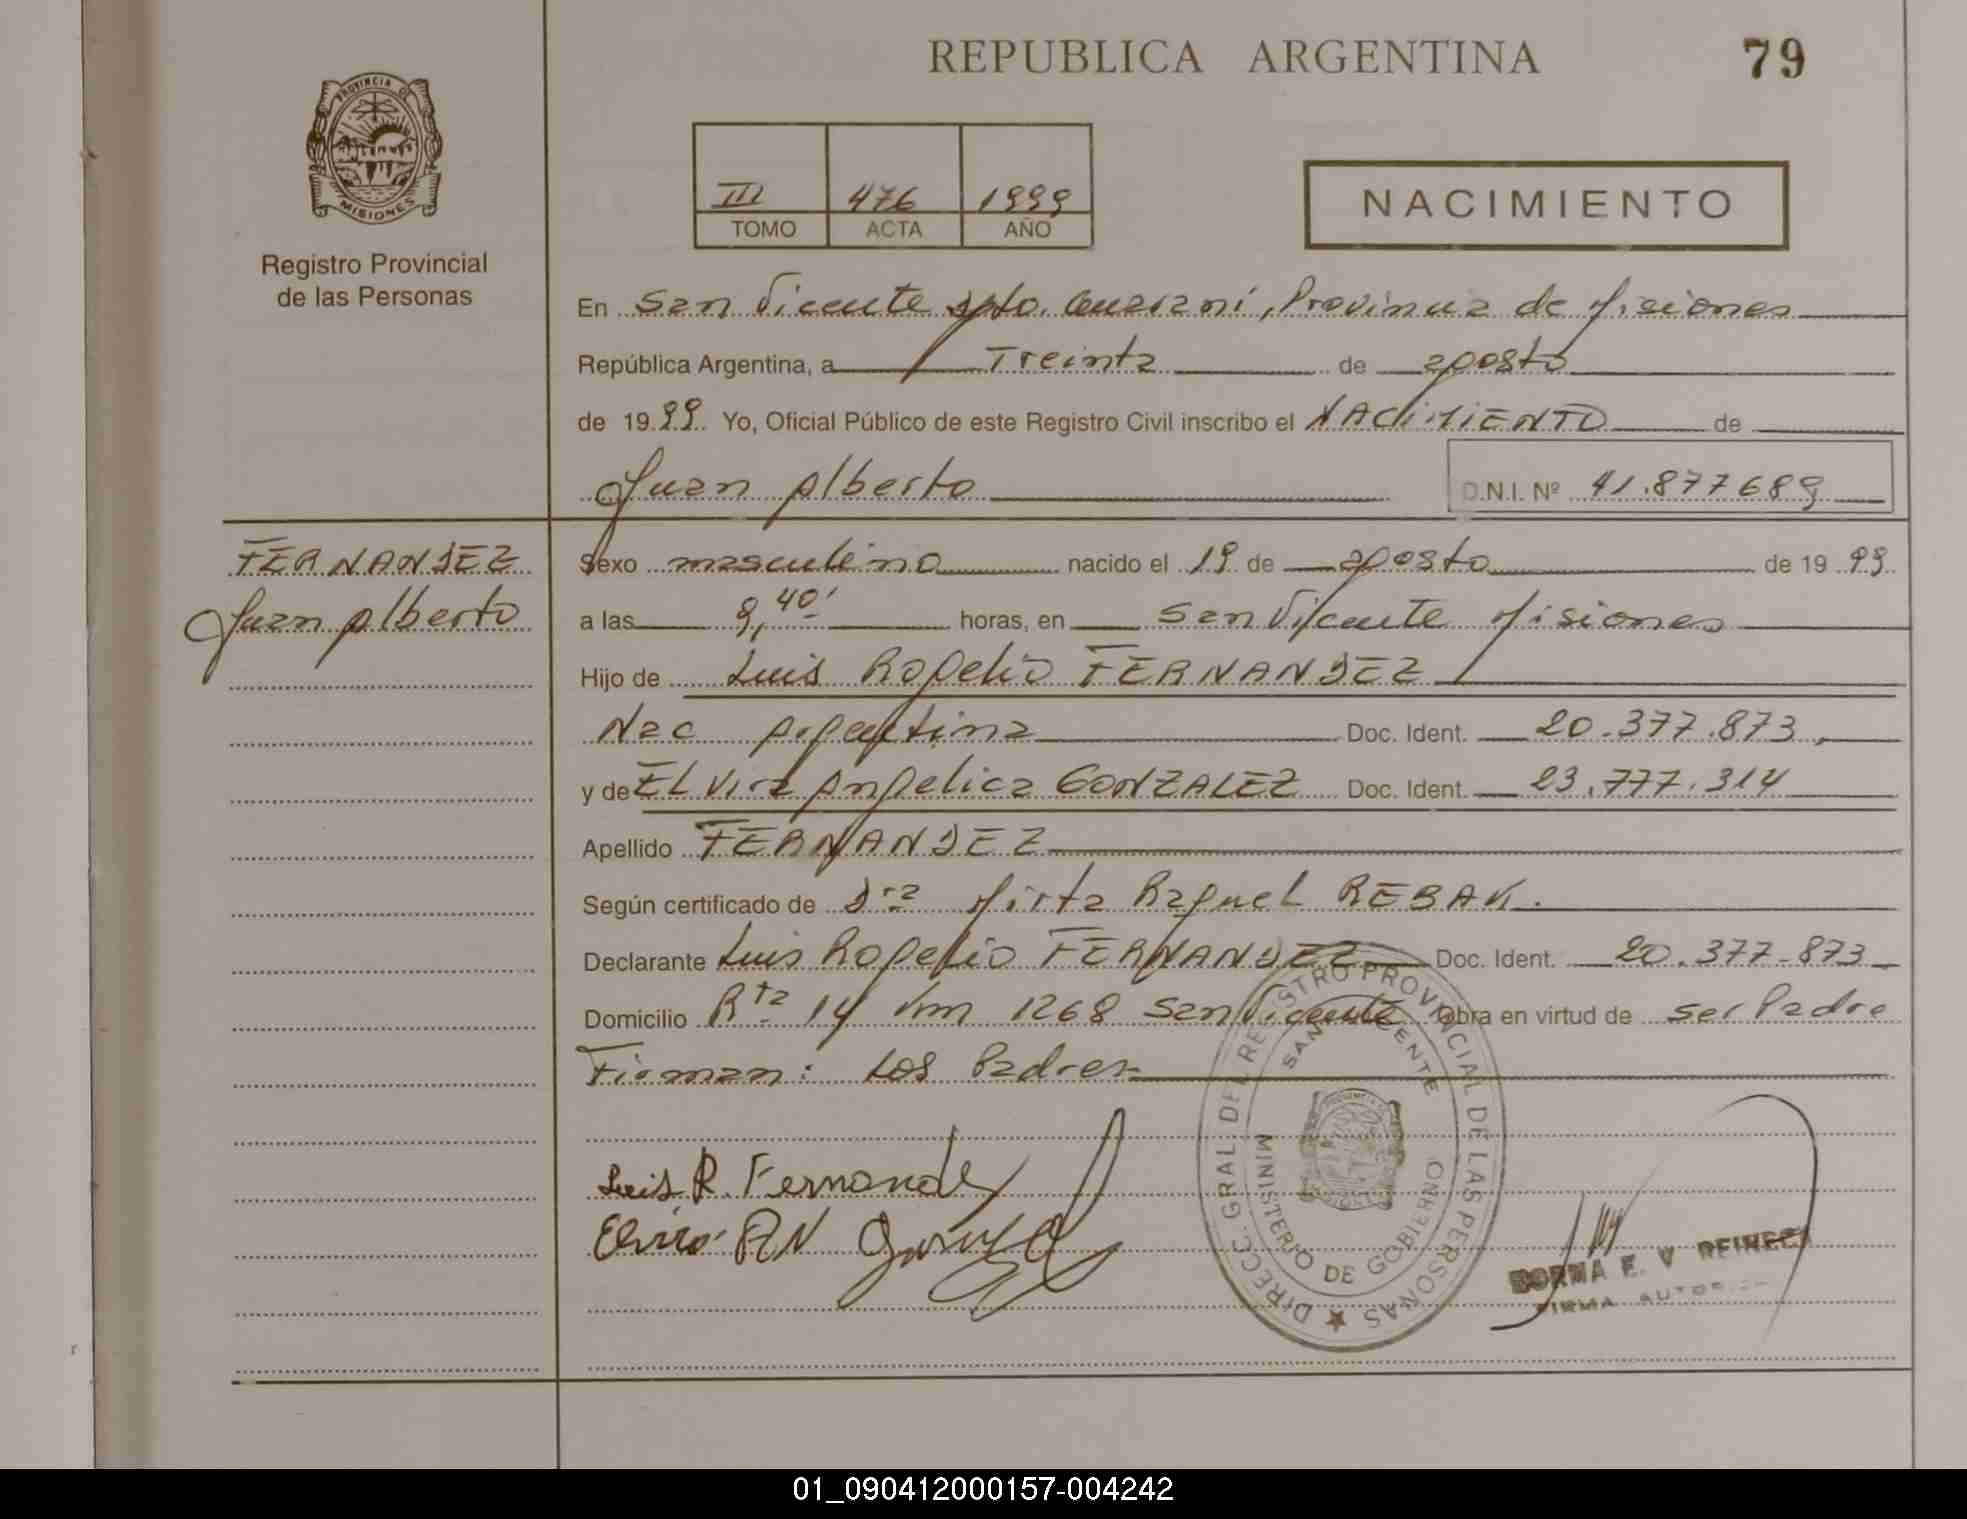 REPUBLICA ARGENTINA
79
PROVINCIA DE
MISIONES
Registro Provincial
de las Personas
III 476 1999
TOMO ACTA AÑO
NACIMIENTO
En San Vicente dpto. Guaraní, Provincia de Misiones
República Argentina, a Treinta de agosto
de 1999. Yo, Oficial Público de este Registro Civil inscribo el NACIMIENTO de
Juan Alberto D.N.I. Nº 41.877689
FERNANDEZ
Juan Alberto
Sexo masculino nacido el 19 de agosto de 1999
a las 9,40' horas, en San Vicente Misiones
Hijo de Luis Rogelio FERNANDEZ
Nac Argentina Doc. Ident. 20.377.873,
y de ELvira Angelica GONZALEZ Doc. Ident. 23.777.314
Apellido FERNANDEZ
Según certificado de Dra Mirta Raquel REBAK.
Declarante Luis Rogelio FERNANDEZ Doc. Ident. 20.377-873
Domicilio Rta 14 Km 1268 San Vicente Obra en virtud de ser Padre
Firman: Los Padres
Luis R. Fernandez
DIRECC. GRAL. DEL REGISTRO PROVINCIAL DE LAS PERSONAS
SAN VICENTE
MINISTERIO DE GOBIERNO
E. V REINECK
FIRMA
01_090412000157-004242